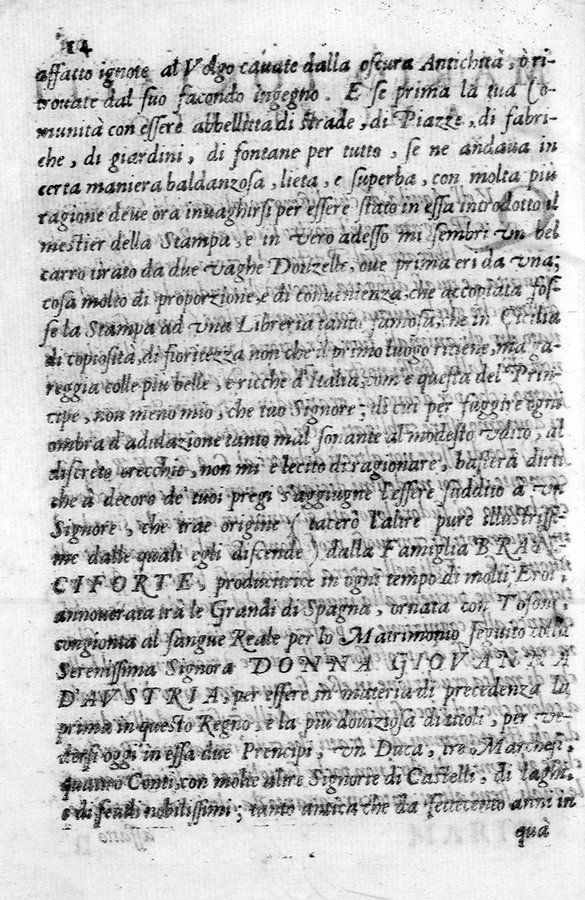 14
affatto ignote al Volgo cauate dalla oscura Antichità, ò ri-
trouate dal suo facondo ingegno. E se prima la tua Co-
munità con essere abbellitta di strade, di Piazze, di fabri-
che, di giardini, di fontane per tutto, se ne andaua in
certa maniera baldanzosa, lieta, e superba, con molta più
ragione deue ora inuaghirsi per essere stato in essa introdotto il
mestier della Stampa, e in vero adesso mi sembri vn bel
carro tirato da due vaghe Donzelle, oue prima eri da vna;
cosa molto di proporzione, e di conuenienza, che accopiata fos-
se la Stampa ad vna Libreria tanto famosa, che in Cicilia
di copiosità, di fioritezza non che il primo luogo ritiene, ma ga-
reggia colle più belle, e ricche d'Italia, com'e questa del Prin-
cipe, non meno mio, che tuo Signore; di cui per fuggire ogni
ombra d'adulazione tanto mal sonante al modesto vdito, al
discreto orecchio, non mi è lecito di ragionare, basterà dirti
che à decoro de' tuoi pregi s'aggiugne l'essere suddito à vn
Signore, che trae origine (tacerò l'altre pure illustrissi-
me dalle quali egli discende) dalla Famiglia BRAN-
CIFORTE, produttrice in ogni tempo di molti Eroi,
annouerata trà le Grandi di Spagna, ornata con Tosoni,
congionta al sangue Reale per lo Matrimonio seguito colla
Serenissima Signora DONNA GIOVANNA
D'AVSTRIA, per essere in materia di precedenza la
prima in questo Regno, e la più douiziosa di titoli, per ve-
dersi oggi in essa due Prencipi, vn Duca, tre Marchesi,
quattro Conti, con molte altre Signorie di Castelli, di laghi,
e di feudi nobilissimi; tanto antica che da settecento anni in
quà